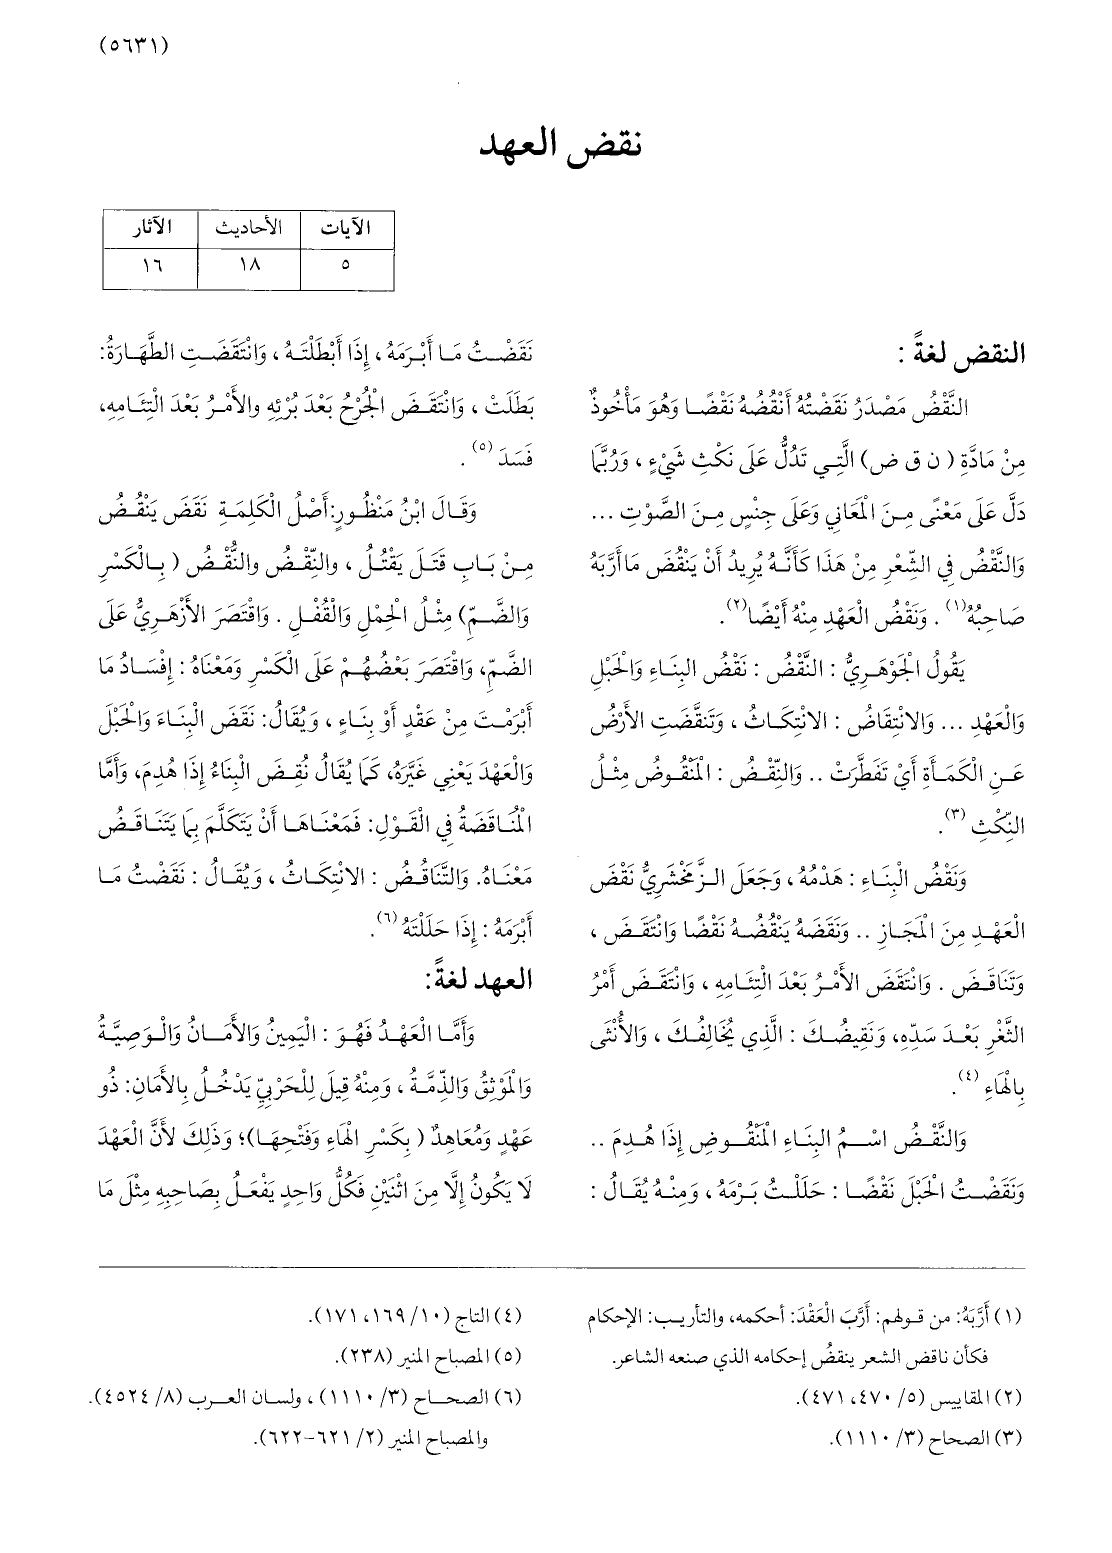 (٥٦٣١)
نقض العهد
الآيات الأحاديث الآثار
٥ ١٨ ١٦
النقض لغةً :
النَّقْضُ مَصْدَرُ نَقَضْتُهُ أَنْقُضُهُ نَقْضًا وَهُوَ مَأْخُوذٌ
مِنْ مَادَّةِ ( ن ق ض) الَّتِي تَدُلُّ عَلَى نَكْثِ شَيْءٍ ، وَرُبَّمَا
دَلَّ عَلَى مَعْنًى مِنَ الْمَعَانِي وَعَلَى جِنْسٍ مِنَ الصَّوْتِ ...
وَالنَّقْضُ فِي الشِّعْرِ مِنْ هَذَا كَأَنَّهُ يُرِيدُ أَنْ يَنْقُضَ مَا أَرَّبَهُ
صَاحِبُهُ(١) . وَنَقْضُ الْعَهْدِ مِنْهُ أَيْضًا(٢).
يَقُولُ الْجَوْهَرِيُّ : النَّقْضُ : نَقْضُ البِنَاءِ وَالْحَبْلِ
وَالْعَهْدِ ... وَالانْتِقَاضُ : الانْتِكَاثُ ، وَتَنَقَّضَتِ الأَرْضُ
عَنِ الْكَمَأَةِ أَيْ تَفَطَّرَتْ .. وَالنِّقْضُ : الْمَنْقُوضُ مِثْلُ
النِّكْثِ (٣).
وَنَقْضُ الْبِنَاءِ : هَدْمُهُ ، وَجَعَلَ الزَّمَخْشَرِيُّ نَقْضَ
الْعَهْدِ مِنَ الْمَجَازِ .. وَنَقَضَهُ يَنْقُضُهُ نَقْضًا وَانْتَقَضَ ،
وَتَنَاقَضَ . وَانْتَقَضَ الأَمْرُ بَعْدَ الْتِئَامِهِ ، وَانْتَقَضَ أَمْرُ
الثَّغْرِ بَعْدَ سَدِّهِ، وَنَقِيضُكَ : الَّذِي يُخَالِفُكَ ، وَالأُنْثَى
بِالْهَاءِ (٤).
وَالنَّقْضُ اسْمُ البِنَاءِ الْمَنْقُوضِ إِذَا هُدِمَ ..
وَنَقَضْتُ الْحَبْلَ نَقْضًا : حَلَلْتُ بَرْمَهُ ، وَمِنْهُ يُقَالُ :
نَقَضْتُ مَا أَبْرَمَهُ ، إِذَا أَبْطَلْتَهُ ، وَانْتَقَضَتِ الطَّهَارَةُ:
بَطَلَتْ ، وَانْتَقَضَ الْجُرْحُ بَعْدَ بُرْئِهِ والأَمْرُ بَعْدَ الْتِئَامِهِ،
فَسَدَ (٥) .
وَقَالَ ابْنُ مَنْظُورٍ:أَصْلُ الْكَلِمَةِ نَقَضَ يَنْقُضُ
مِنْ بَابِ قَتَلَ يَقْتُلُ ، والنِّقْضُ والنُّقْضُ ( بِالْكَسْرِ
وَالضَّمِّ) مِثْلُ الْحِمْلِ وَالْقُفْلِ . وَاقْتَصَرَ الأَزْهَرِيُّ عَلَى
الضَّمِّ، وَاقْتَصَرَ بَعْضُهُمْ عَلَى الْكَسْرِ وَمَعْنَاهُ : إِفْسَادُ مَا
أَبْرَمْتَ مِنْ عَقْدٍ أَوْ بِنَاءٍ ، وَيُقَالُ: نَقَضَ الْبِنَاءَ وَالْحَبْلَ
وَالْعَهْدَ يَعْنِي غَيَّرَهُ، كَمَا يُقَالُ نُقِضَ الْبِنَاءُ إِذَا هُدِمَ، وَأَمَّا
الْمُنَاقَضَةُ فِي الْقَوْلِ: فَمَعْنَاهَا أَنْ يَتَكَلَّمَ بِمَا يَتَنَاقَضُ
مَعْنَاهُ. وَالتَّنَاقُضُ : الانْتِكَاثُ ، وَيُقَالُ : نَقَضْتُ مَا
أَبْرَمَهُ : إِذَا حَلَلْتَهُ (٦).
العهد لغةً:
وَأَمَّا الْعَهْدُ فَهُوَ : الْيَمِينُ وَالأَمَانُ وَالْوَصِيَّةُ
وَالْمَوْثِقُ وَالذِّمَّةُ ، وَمِنْهُ قِيلَ لِلْحَرْبِيِّ يَدْخُلُ بِالأَمَانِ: ذُو
عَهْدٍ وَمُعَاهِدٌ ( بِكَسْرِ الْهَاءِ وَفَتْحِهَا)؛ وَذَلِكَ لأَنَّ الْعَهْدَ
لَا يَكُونُ إِلَّا مِنَ اثْنَيْنِ فَكُلُّ وَاحِدٍ يَفْعَلُ بِصَاحِبِهِ مِثْلَ مَا
(١) أَرَّبَهُ: من قولهم: أَرَّبَ الْعَقْدَ: أحكمه، والتأريب: الإحكام
فكأن ناقض الشعر ينقضُ إحكامه الذي صنعه الشاعر.
(٢) المقاييس (٥/ ٤٧٠، ٤٧١).
(٣) الصحاح (٣/ ١١١٠).
(٤) التاج (١٠/ ١٦٩، ١٧١).
(٥) المصباح المنير (٢٣٨).
(٦) الصحاح (٣/ ١١١٠) ، ولسان العرب (٨/ ٤٥٢٤).
والمصباح المنير (٢/ ٦٢١-٦٢٢).